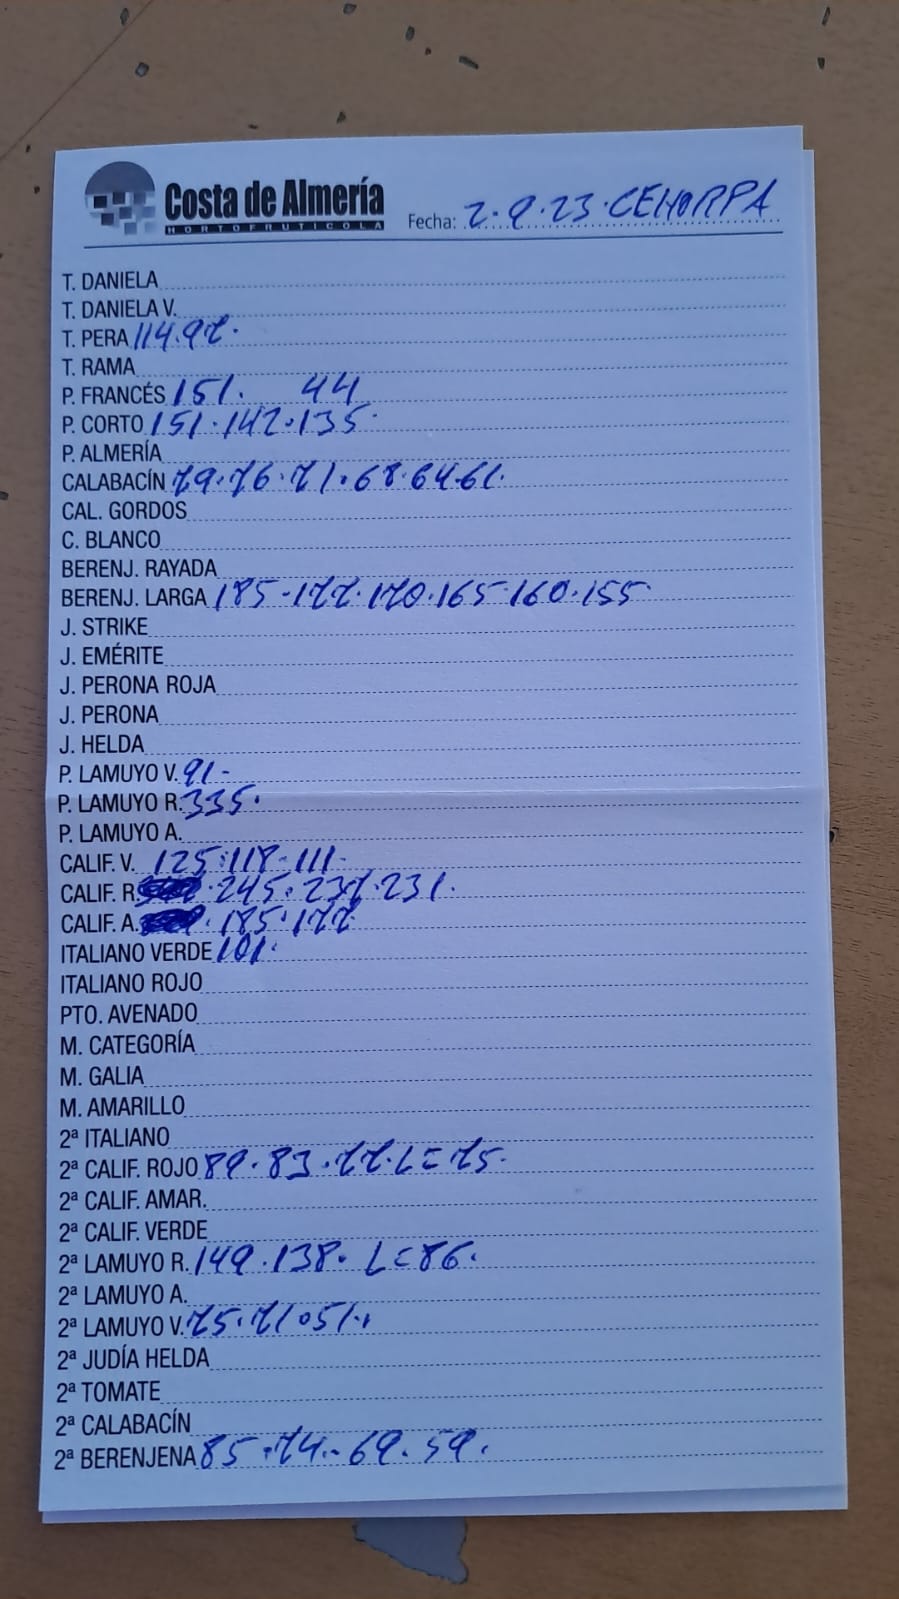 Costa de Almería
HORTOFRUTICOLA
Fecha: 2.9.23.CEHORPA
T. DANELA
T. DANIELA V.
T. PERA 114.97.
T. RAMA
P. FRANCÉS 151. 44
P. CORTO 151.142.135.
P. ALMERÍA
CALABACÍN 79.76.71.68.64.61.
CAL. GORDOS
C. BLANCO
BERENJ. RAYADA
BERENJ. LARGA 185-177.170.165.160.155.
J. STRIKE
J. EMÉRITE
J. PERONA ROJA
J. PERONA
J. HELDA
P. LAMUYO V. 91-
P. LAMUYO R. 335.
P. LAMUYO A.
CALIF. V. 125.118-111-
CALIF. R. .245.237.231.
CALIF. A. .185.177
ITALIANO VERDE 101.
ITALIANO ROJO
PTO. AVENADO
M. CATEGORÍA
M. GALIA
M. AMARILLO
2ª ITALIANO
2ª CALIF. ROJO 89.83.77.L=75.
2ª CALIF. AMAR.
2ª CALIF. VERDE
2ª LAMUYO R. 149.138. L=86.
2ª LAMUYO A.
2ª LAMUYO V. 75.71.51..
2ª JUDÍA HELDA
2ª TOMATE
2ª CALABACÍN
2ª BERENJENA 85.74.-69.59.